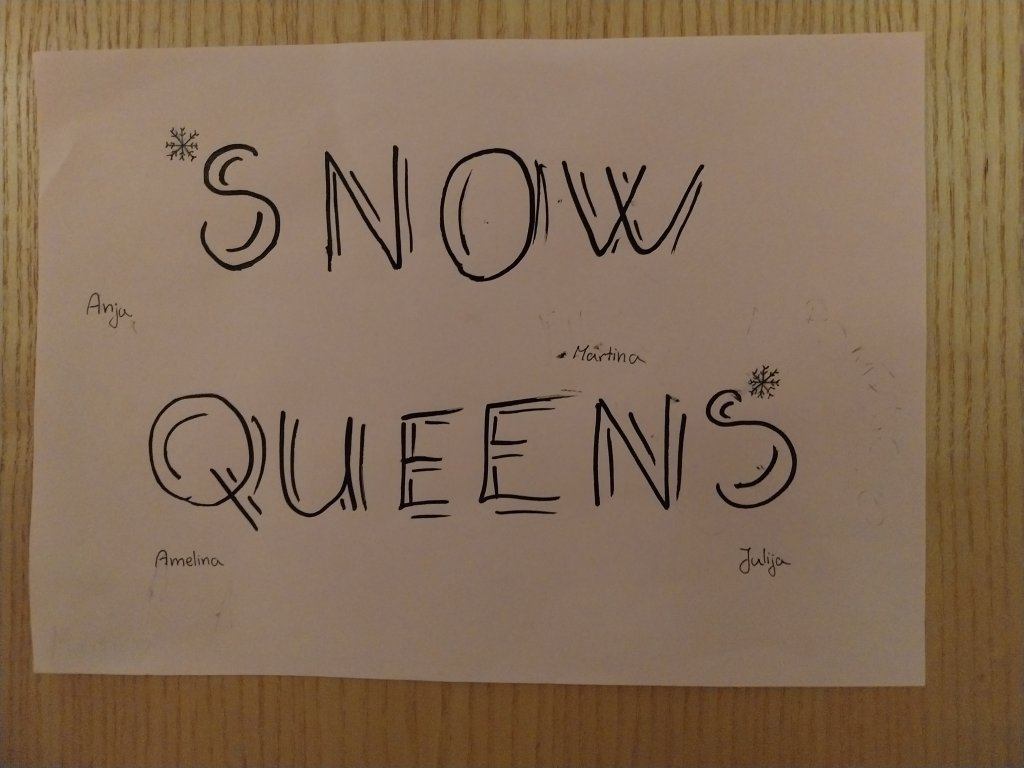 SNOW
Anja
Martina
QUEENS
Amelina
Julija